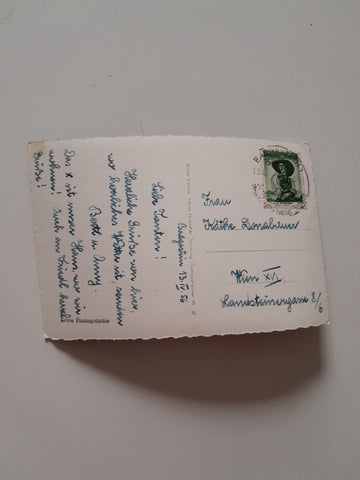 Badgastein 13 IV 56
Liebe Tanten!
Herzliche Grüße von hier,
wo herrliches Wetter ist, senden
Berti u.
Das x ist unser Haus, wo wir
wohnen! Auch an Friedl herzl.
Grüße!
Echte Photographie
Frau
Käthe Donabauer
Wien XVI.
Landsteinergasse 8/6